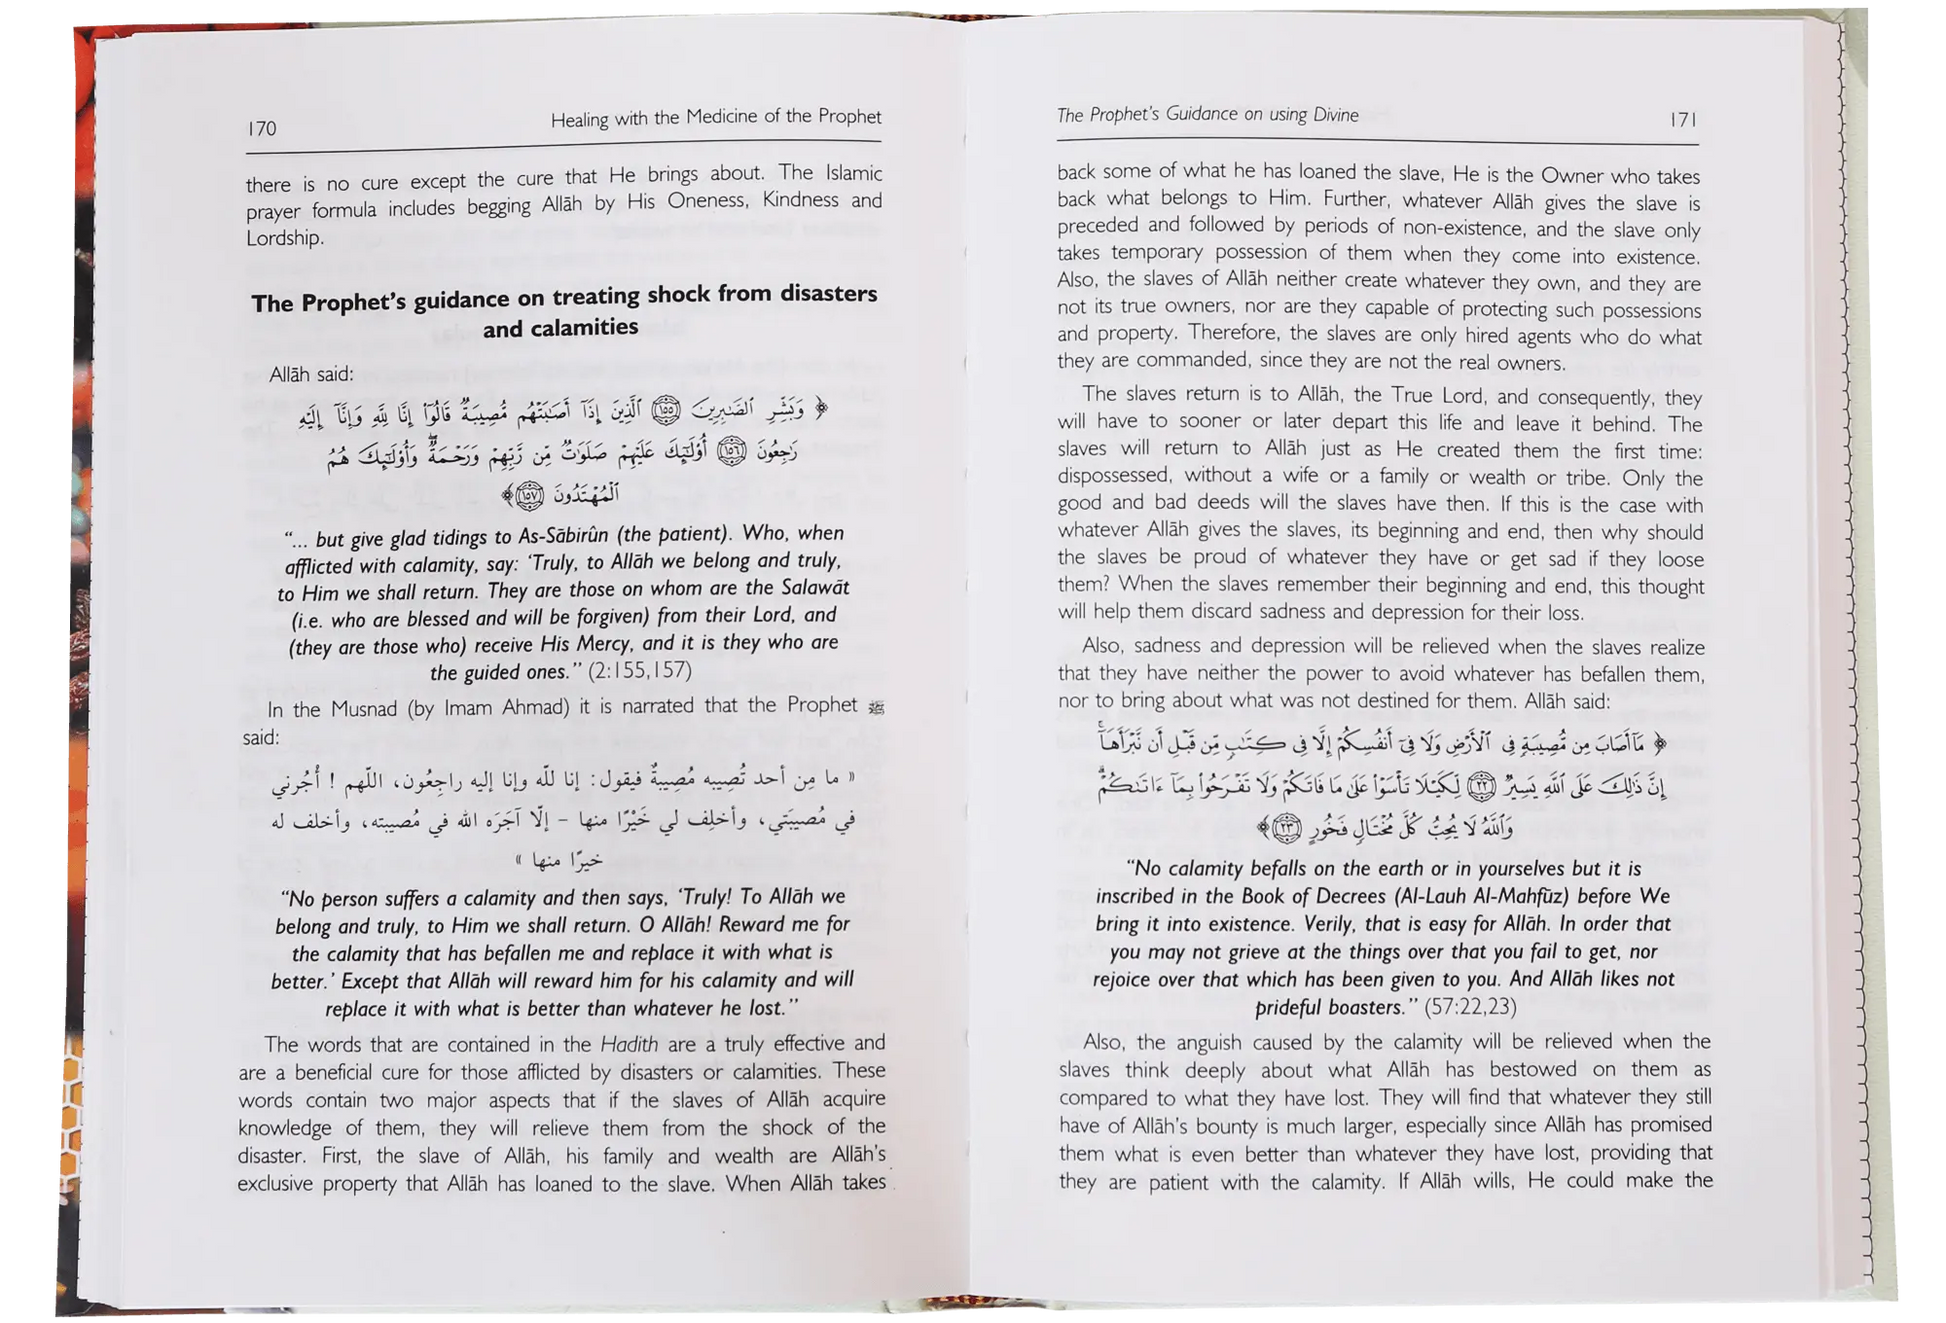 170
Healing with the Medicine of the Prophet
there is no cure except the cure that He brings about. The Islamic
prayer formula includes begging Allāh by His Oneness, Kindness and
Lordship.
The Prophet's guidance on treating shock from disasters
and calamities
Allāh said:
﴿ وَبَشِّرِ الصَّٰبِرِينَ ١٥٥ الَّذِينَ إِذَآ أَصَٰبَتْهُم مُّصِيبَةٌ قَالُوٓا۟ إِنَّا لِلَّهِ وَإِنَّآ إِلَيْهِ
رَٰجِعُونَ ١٥٦ أُو۟لَٰٓئِكَ عَلَيْهِمْ صَلَوَٰتٌ مِّن رَّبِّهِمْ وَرَحْمَةٌ ۖ وَأُو۟لَٰٓئِكَ هُمُ
الْمُهْتَدُونَ ١٥٧ ﴾
"... but give glad tidings to As-Sābirûn (the patient). Who, when
afflicted with calamity, say: 'Truly, to Allāh we belong and truly,
to Him we shall return. They are those on whom are the Salawāt
(i.e. who are blessed and will be forgiven) from their Lord, and
(they are those who) receive His Mercy, and it is they who are
the guided ones." (2:155,157)
In the Musnad (by Imam Ahmad) it is narrated that the Prophet ﷺ
said:
« ما مِن أحد تُصِيبه مُصِيبةٌ فيقول: إنا للّه وإنا إليه راجِعُون، اللّهم ! أُجُرني
في مُصيبَتي، وأخلِف لي خَيْرًا منها – إلّا آجَرَه الله في مُصيبته، وأخلف له
خيرًا منها »
"No person suffers a calamity and then says, 'Truly! To Allāh we
belong and truly, to Him we shall return. O Allāh! Reward me for
the calamity that has befallen me and replace it with what is
better.' Except that Allāh will reward him for his calamity and will
replace it with what is better than whatever he lost."
The words that are contained in the Hadith are a truly effective and
are a beneficial cure for those afflicted by disasters or calamities. These
words contain two major aspects that if the slaves of Allāh acquire
knowledge of them, they will relieve them from the shock of the
disaster. First, the slave of Allāh, his family and wealth are Allāh's
exclusive property that Allāh has loaned to the slave. When Allāh takes
The Prophet's Guidance on using Divine
171
back some of what he has loaned the slave, He is the Owner who takes
back what belongs to Him. Further, whatever Allāh gives the slave is
preceded and followed by periods of non-existence, and the slave only
takes temporary possession of them when they come into existence.
Also, the slaves of Allāh neither create whatever they own, and they are
not its true owners, nor are they capable of protecting such possessions
and property. Therefore, the slaves are only hired agents who do what
they are commanded, since they are not the real owners.
The slaves return is to Allāh, the True Lord, and consequently, they
will have to sooner or later depart this life and leave it behind. The
slaves will return to Allāh just as He created them the first time:
dispossessed, without a wife or a family or wealth or tribe. Only the
good and bad deeds will the slaves have then. If this is the case with
whatever Allāh gives the slaves, its beginning and end, then why should
the slaves be proud of whatever they have or get sad if they loose
them? When the slaves remember their beginning and end, this thought
will help them discard sadness and depression for their loss.
Also, sadness and depression will be relieved when the slaves realize
that they have neither the power to avoid whatever has befallen them,
nor to bring about what was not destined for them. Allāh said:
﴿ مَآ أَصَابَ مِن مُّصِيبَةٍ فِى الْأَرْضِ وَلَا فِىٓ أَنفُسِكُمْ إِلَّا فِى كِتَٰبٍ مِّن قَبْلِ أَن نَّبْرَأَهَآ ۚ
إِنَّ ذَٰلِكَ عَلَى اللَّهِ يَسِيرٌ ٢٢ لِّكَيْلَا تَأْسَوْا۟ عَلَىٰ مَا فَاتَكُمْ وَلَا تَفْرَحُوا۟ بِمَآ ءَاتَىٰكُمْ ۗ
وَاللَّهُ لَا يُحِبُّ كُلَّ مُخْتَالٍ فَخُورٍ ٢٣ ﴾
"No calamity befalls on the earth or in yourselves but it is
inscribed in the Book of Decrees (Al-Lauh Al-Mahfūz) before We
bring it into existence. Verily, that is easy for Allāh. In order that
you may not grieve at the things over that you fail to get, nor
rejoice over that which has been given to you. And Allāh likes not
prideful boasters." (57:22,23)
Also, the anguish caused by the calamity will be relieved when the
slaves think deeply about what Allāh has bestowed on them as
compared to what they have lost. They will find that whatever they still
have of Allāh's bounty is much larger, especially since Allāh has promised
them what is even better than whatever they have lost, providing that
they are patient with the calamity. If Allāh wills, He could make the